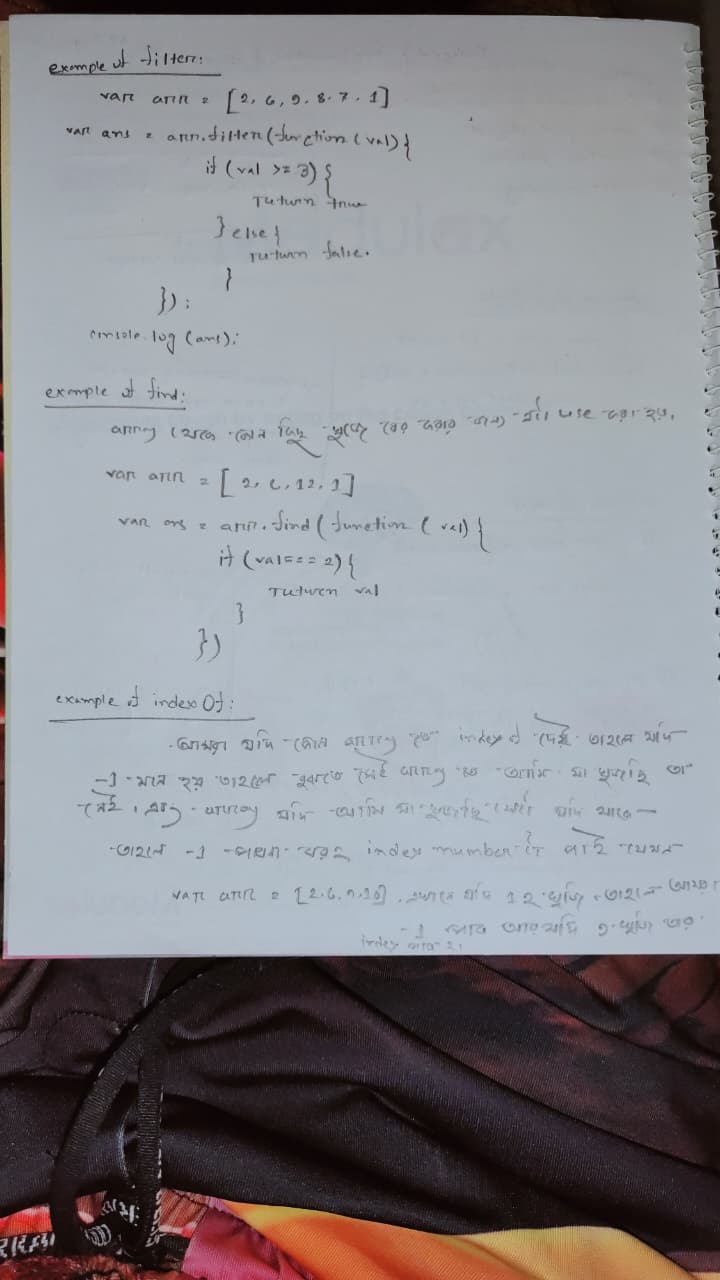 example of filter:
var arr = [2, 6, 9, 8, 7, 1]
var ans = arr.filter(function(val){
if (val >= 3) {
return true
} else {
return false.
}
});
console.log(ans);
example of find:
array থেকে কোন কিছু খুজে বের করার জন্য এটা use করা হয়,
var arr = [2, 6, 12, 1]
var ans = arr.find(function(val){
if (val === 2){
return val
}
})
example of indexOf:
আমরা যদি কোন array তে indexOf দেই তাহলে যদি
-1 মনে হয় তাহলে বুঝতে সেই array তে আমি যা খুজছি তা
নেই, এবং array যদি আমি যা খুজছি সেটা যদি থাকে
তাহলে -1 index number টা পাই যেমন
var arr = [2, 6, 9, 10], এখানে যদি 12 খুজি তাহলে আমরা
-1 পাব আর যদি 9 খুজি তবে
index পাব 2।